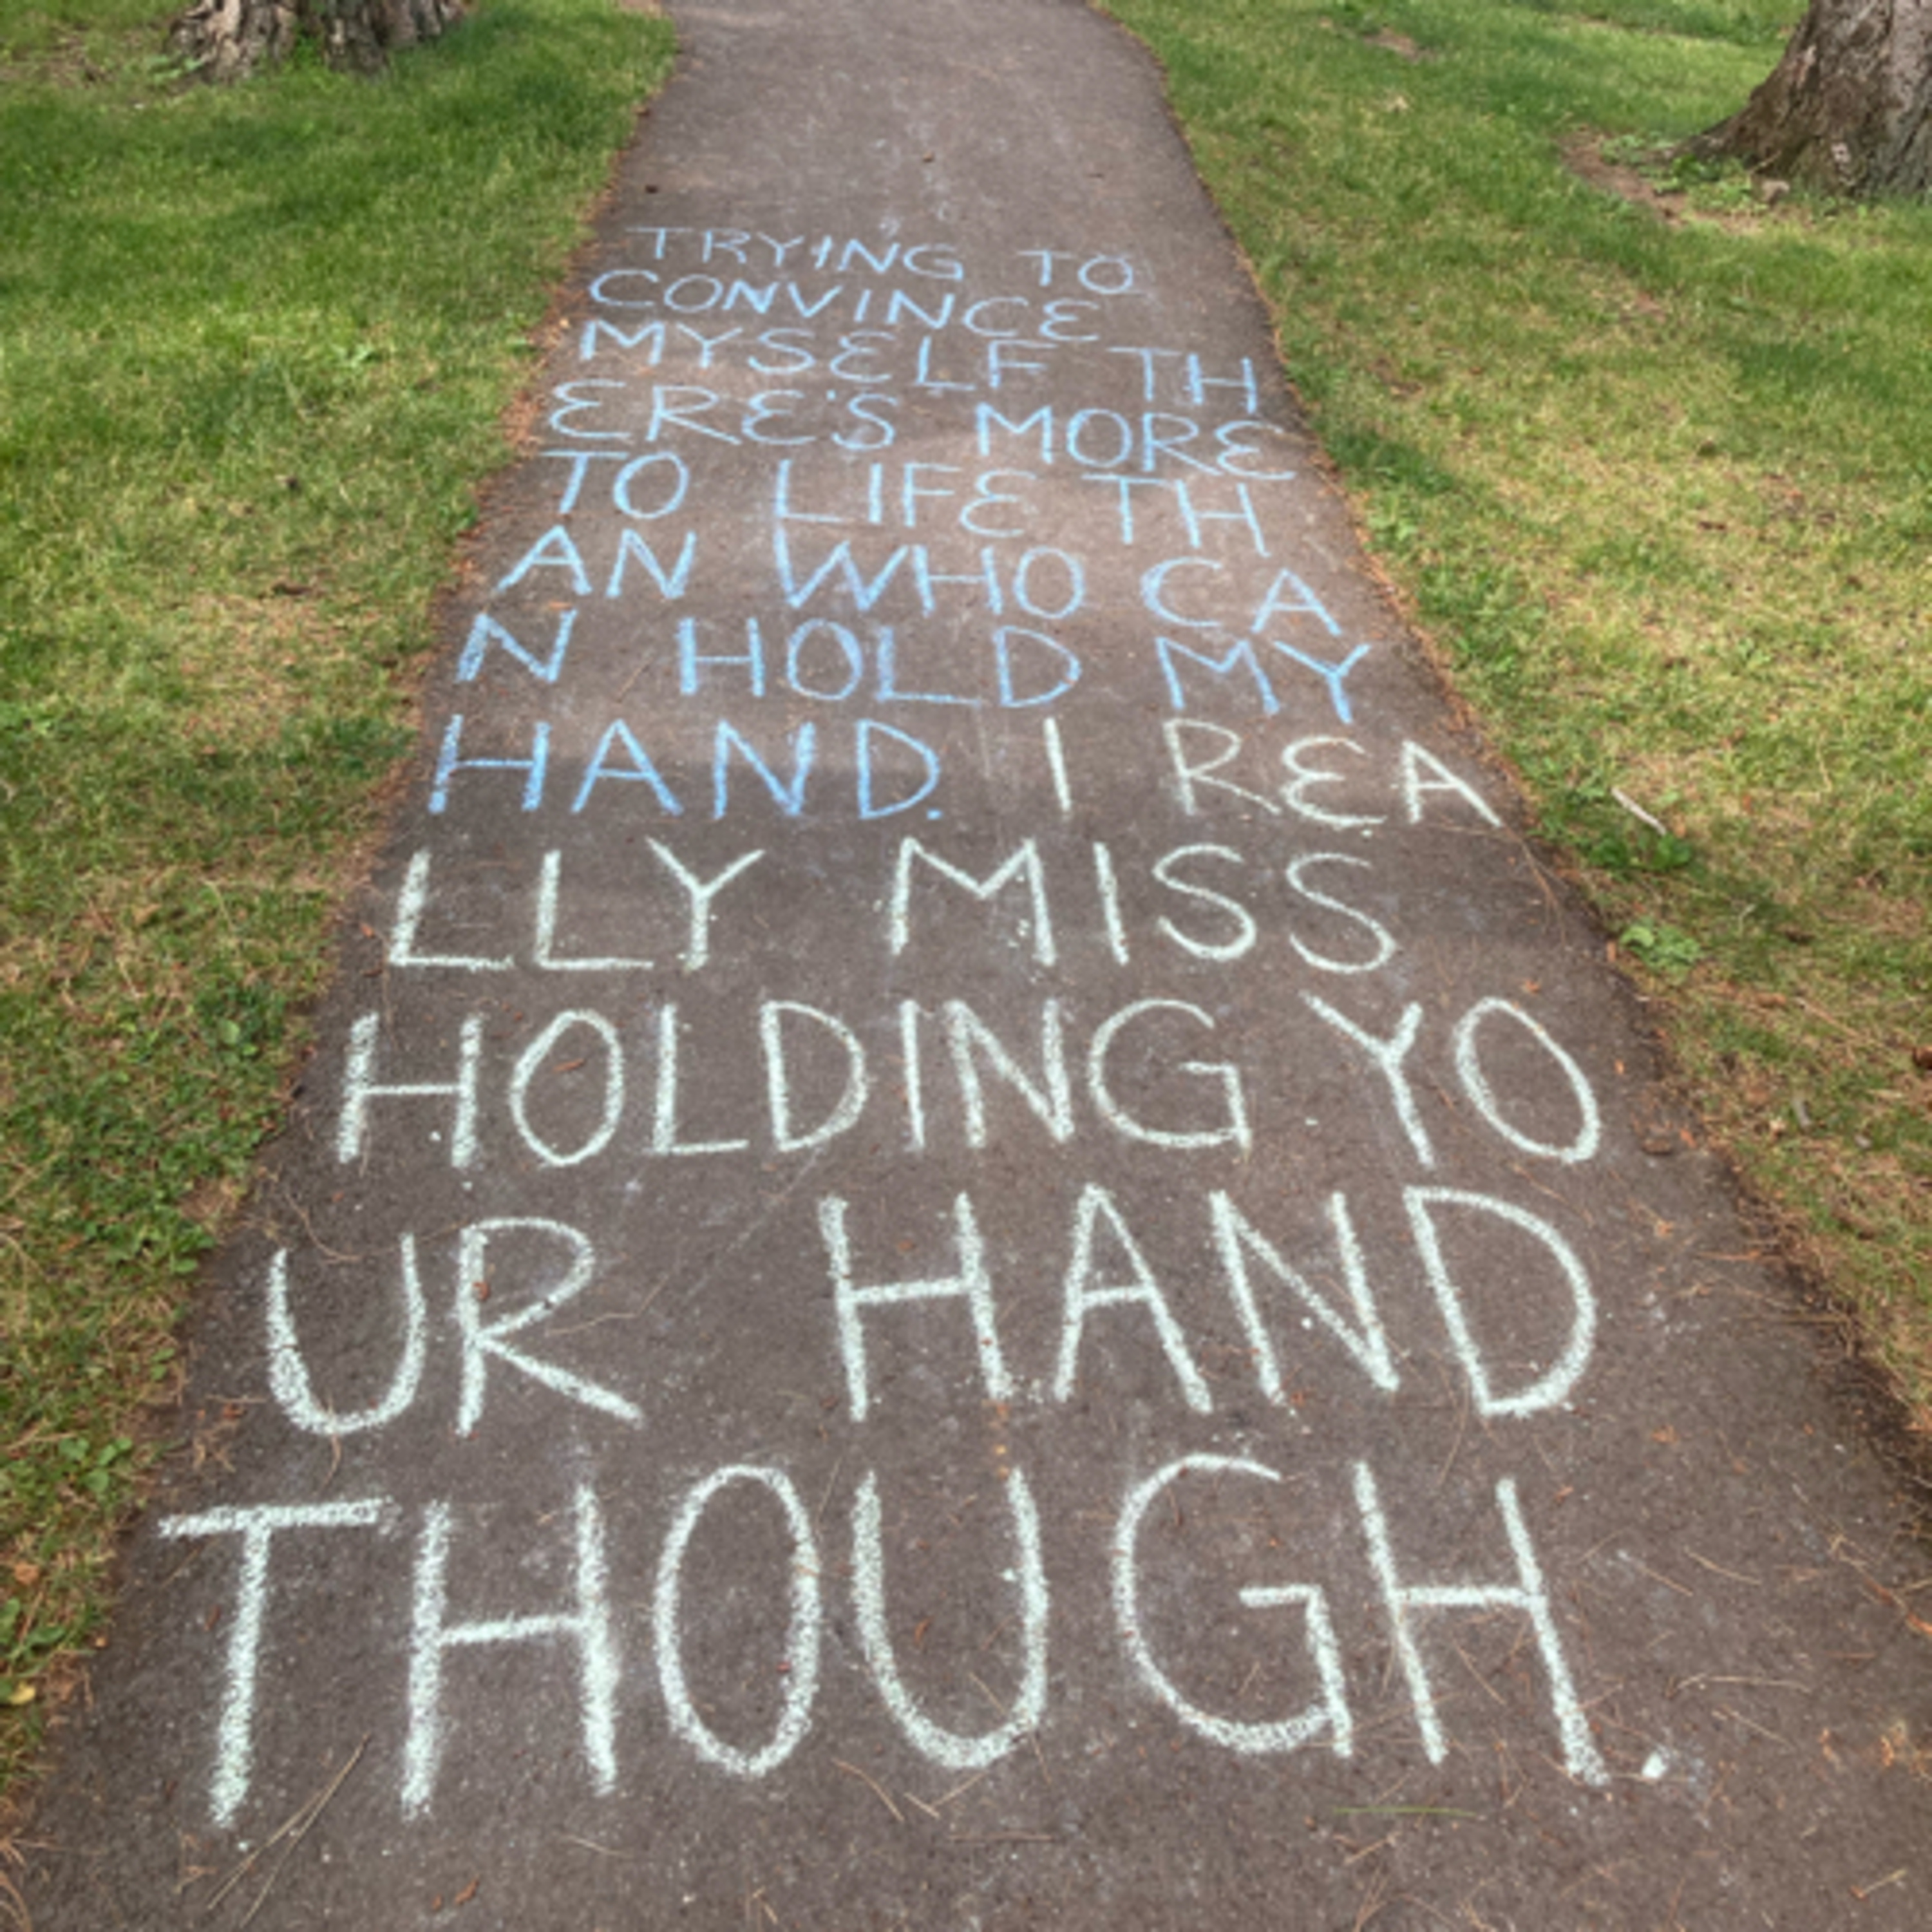 TRYING TO
CONVINCE
MYSELF TH
ERE'S MORE
TO LIFE TH
AN WHO CA
N HOLD MY
HAND. I REA
LLY MISS
HOLDING YO
UR HAND
THOUGH.